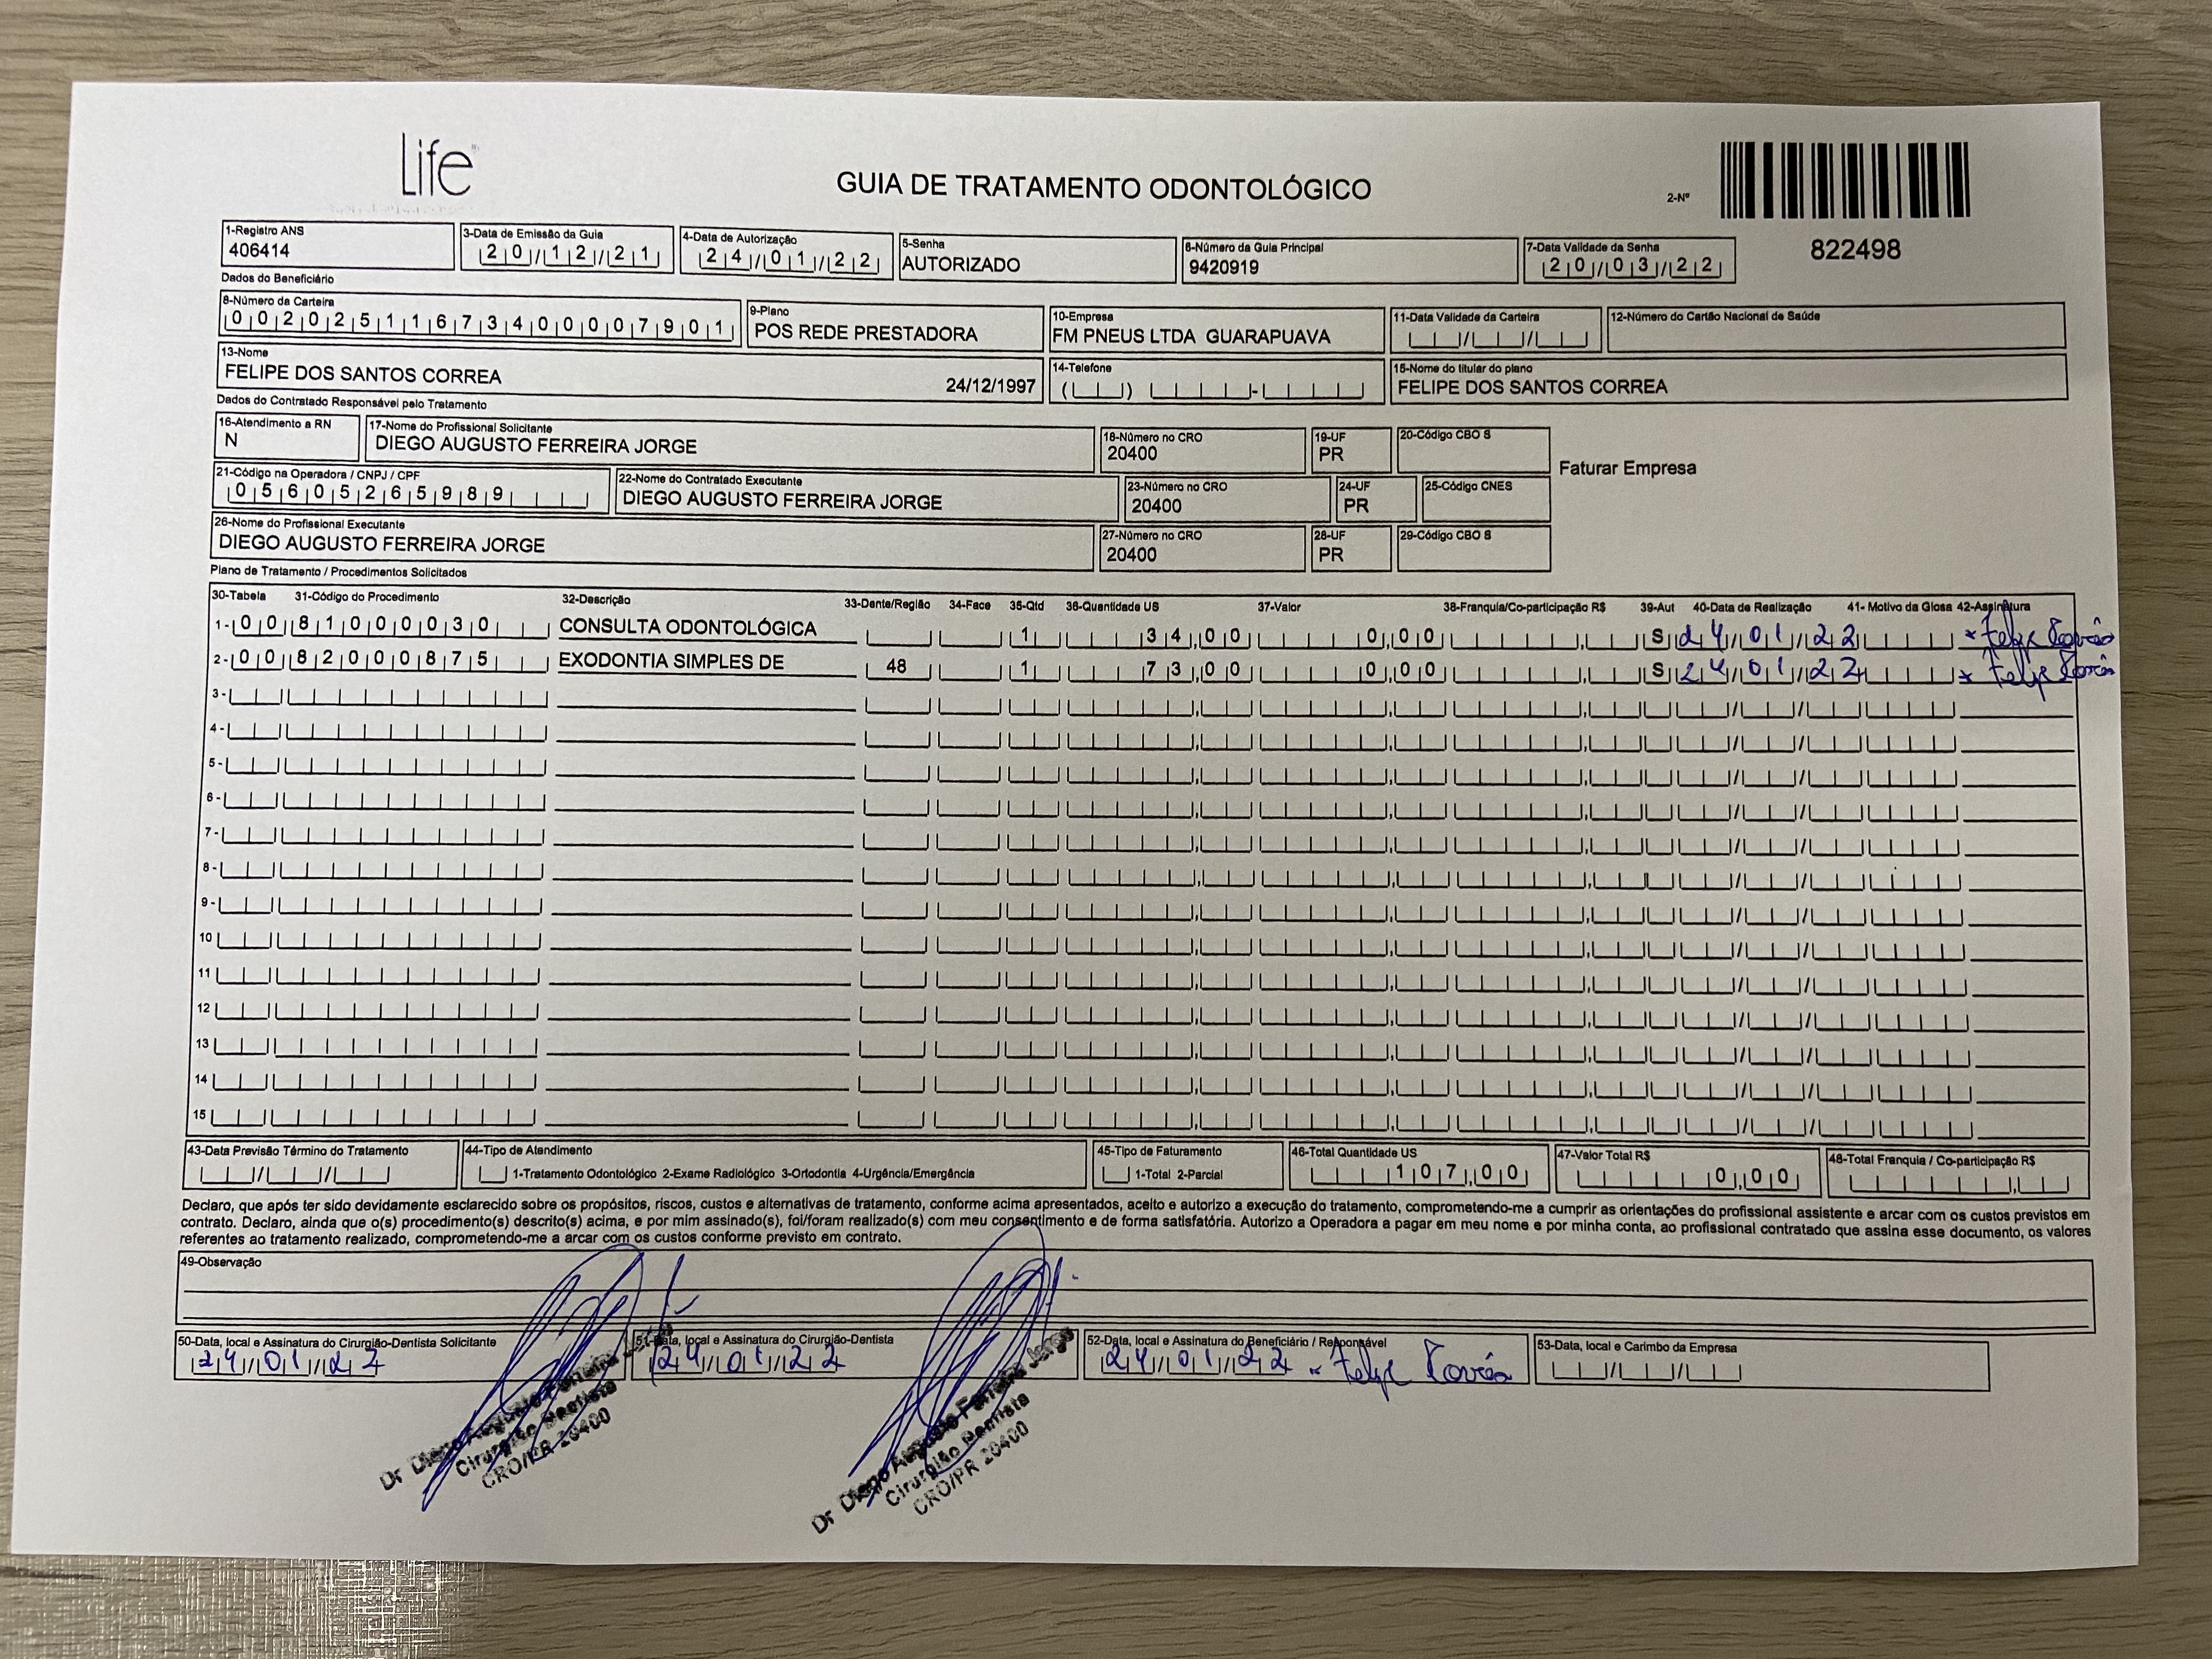 Life
GUIA DE TRATAMENTO ODONTOLÓGICO
2-Nº
822498
1-Registro ANS
406414
3-Data de Emissão da Guia
20/12/21
4-Data de Autorização
24/01/22
5-Senha
AUTORIZADO
6-Número da Guia Principal
9420919
7-Data Validade da Senha
20/03/22
Dados do Beneficiário
8-Número da Carteira
00202511673400007901
9-Plano
POS REDE PRESTADORA
10-Empresa
FM PNEUS LTDA GUARAPUAVA
11-Data Validade da Carteira
12-Número do Cartão Nacional de Saúde
13-Nome
FELIPE DOS SANTOS CORREA 24/12/1997
14-Telefone
15-Nome do titular do plano
FELIPE DOS SANTOS CORREA
Dados do Contratado Responsável pelo Tratamento
16-Atendimento a RN
N
17-Nome do Profissional Solicitante
DIEGO AUGUSTO FERREIRA JORGE
18-Número no CRO
20400
19-UF
PR
20-Código CBO S
Faturar Empresa
21-Código na Operadora / CNPJ / CPF
05605265989
22-Nome do Contratado Executante
DIEGO AUGUSTO FERREIRA JORGE
23-Número no CRO
20400
24-UF
PR
25-Código CNES
26-Nome do Profissional Executante
DIEGO AUGUSTO FERREIRA JORGE
27-Número no CRO
20400
28-UF
PR
29-Código CBO S
Plano de Tratamento / Procedimentos Solicitados
30-Tabela 31-Código do Procedimento 32-Descrição 33-Dente/Região 34-Face 35-Qtd 36-Quantidade US 37-Valor 38-Franquia/Co-participação R$ 39-Aut 40-Data de Realização 41- Motivo da Glosa 42-Assinatura
1- 00 81000030 CONSULTA ODONTOLÓGICA 1 34,00 0,00 S 24/01/22 Felipe Corrêa
2- 00 82000875 EXODONTIA SIMPLES DE 48 1 73,00 0,00 S 24/01/22 Felipe Corrêa
3-
4-
5-
6-
7-
8-
9-
10
11
12
13
14
15
43-Data Previsão Término do Tratamento
44-Tipo de Atendimento
1-Tratamento Odontológico 2-Exame Radiológico 3-Ortodontia 4-Urgência/Emergência
45-Tipo de Faturamento
1-Total 2-Parcial
46-Total Quantidade US
107,00
47-Valor Total R$
0,00
48-Total Franquia / Co-participação R$
Declaro, que após ter sido devidamente esclarecido sobre os propósitos, riscos, custos e alternativas de tratamento, conforme acima apresentados, aceito e autorizo a execução do tratamento, comprometendo-me a cumprir as orientações do profissional assistente e arcar com os custos previstos em
contrato. Declaro, ainda que o(s) procedimento(s) descrito(s) acima, e por mim assinado(s), foi/foram realizado(s) com meu consentimento e de forma satisfatória. Autorizo a Operadora a pagar em meu nome e por minha conta, ao profissional contratado que assina esse documento, os valores
referentes ao tratamento realizado, comprometendo-me a arcar com os custos conforme previsto em contrato.
49-Observação
50-Data, local e Assinatura do Cirurgião-Dentista Solicitante
24/01/22
51-Data, local e Assinatura do Cirurgião-Dentista
24/01/22
52-Data, local e Assinatura do Beneficiário / Responsável
24/01/22 Felipe Corrêa
53-Data, local e Carimbo da Empresa
Dr Diego Augusto Ferreira Jorge
Cirurgião Dentista
CRO/PR 20400
Dr Diego Augusto Ferreira Jorge
Cirurgião Dentista
CRO/PR 20400